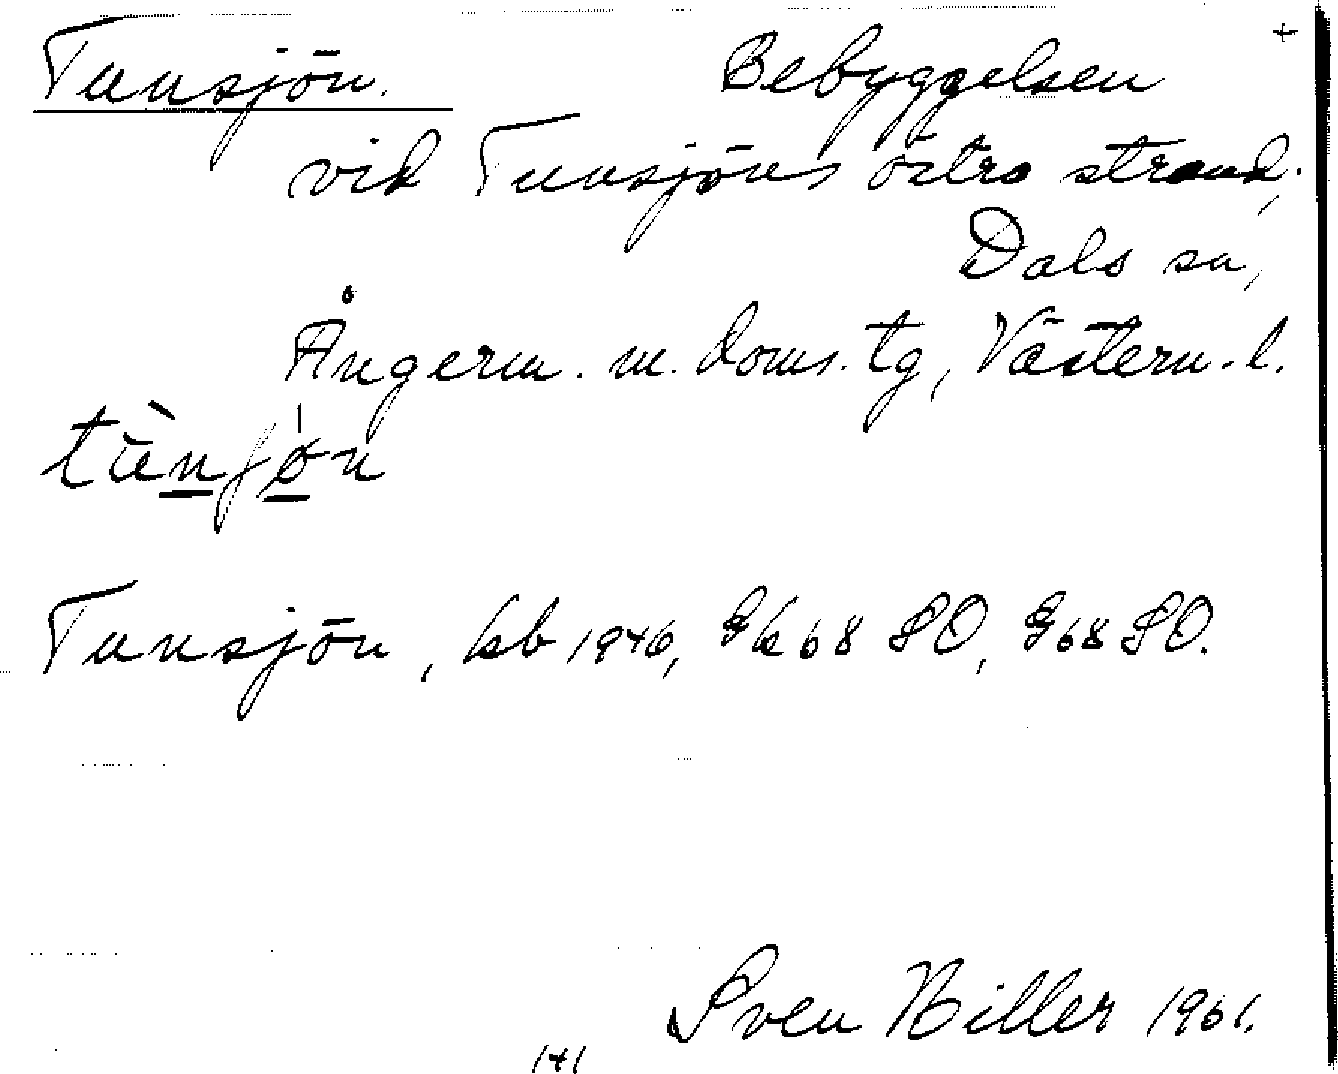 +
Tunsjön. Bebyggelsen
vid Tunsjöns östra strand,
Dals sn,
Ångerm. m. doms. tg, Västern. l.
tùnjøn
Tunsjön, kb 1946, Gk 68 SO, G 68 SO.
Sven Hiller 1961.
141